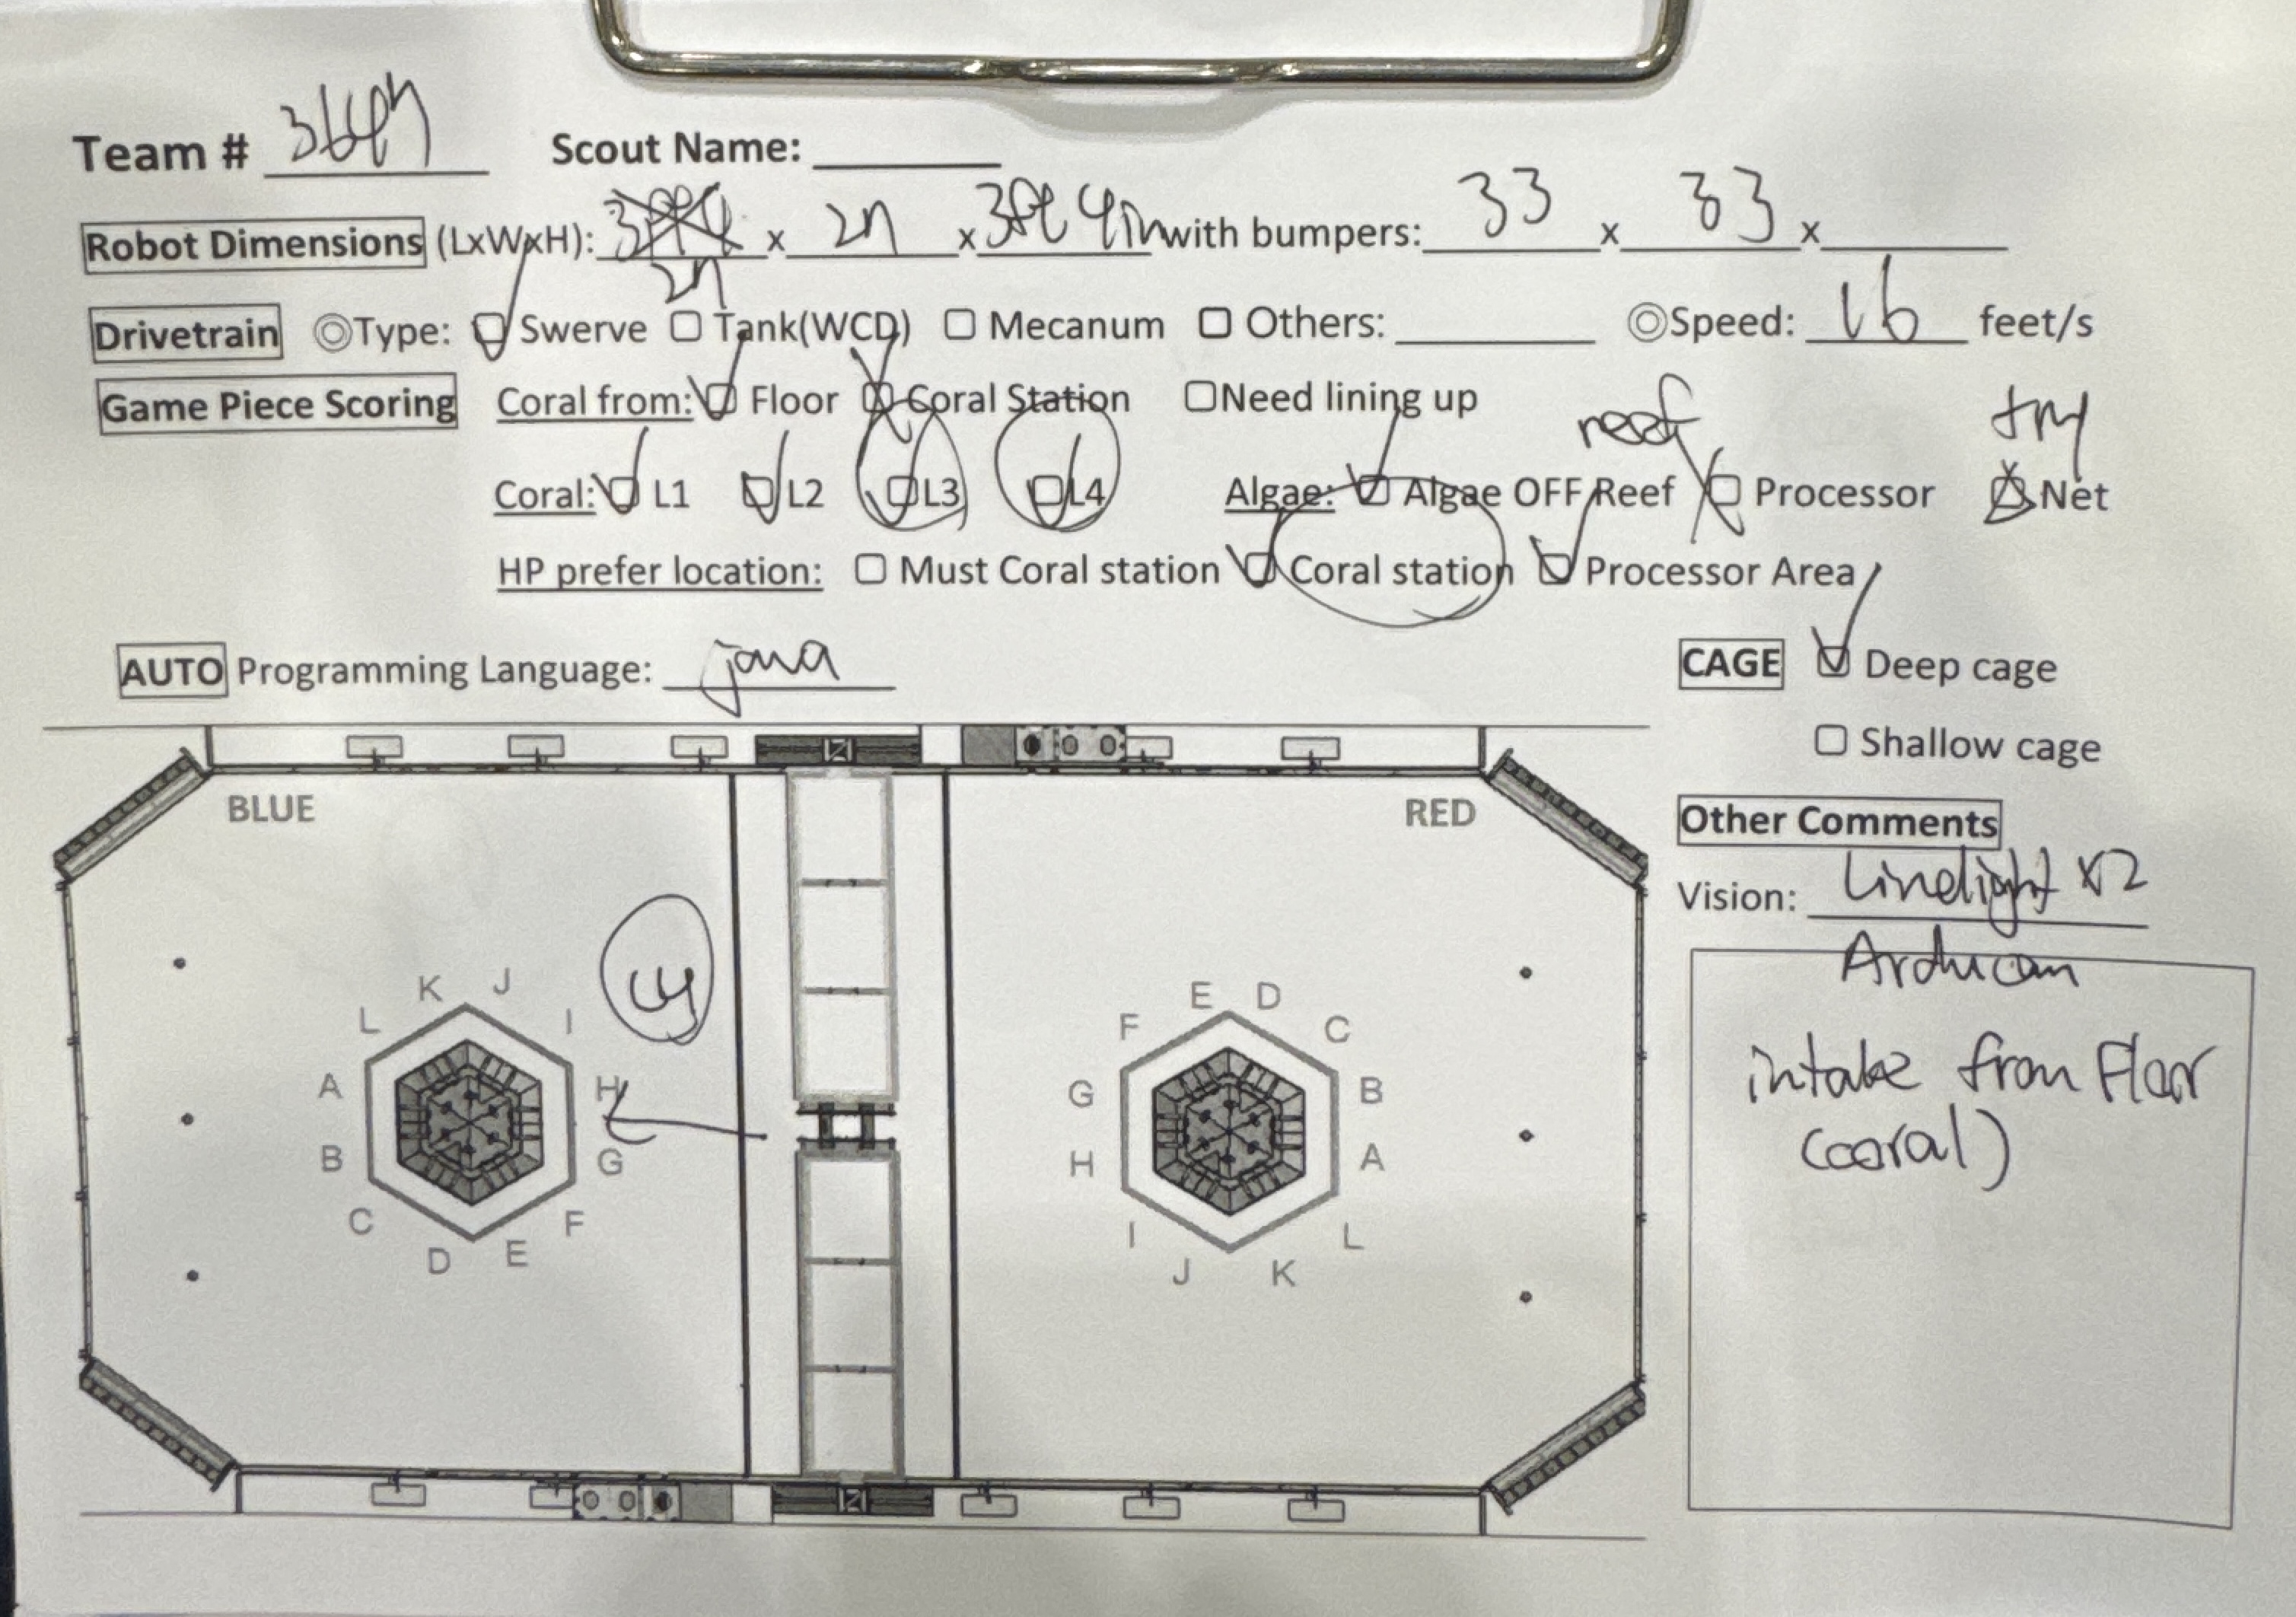 Team # Scout Name:
Robot Dimensions (LxWxH): x 27 x 3ft 4in with bumpers: 33 x 33 x
27
Drivetrain Type: Swerve Tank(WCD) Mecanum Others: Speed: 16 feet/s
Game Piece Scoring Coral from: Floor Coral Station Need lining up
reef try
Coral: L1 L2 L3 L4 Algae: Algae OFF Reef Processor Net
HP prefer location: Must Coral station Coral station Processor Area
AUTO Programming Language: java
CAGE Deep cage
Shallow cage
BLUE RED
Other Comments
Vision: Limelight x2
Arducam
intake from Floor
(coral)
L4
K J
L I
A H
B G
C F
D E
E D
F C
G B
H A
I L
J K